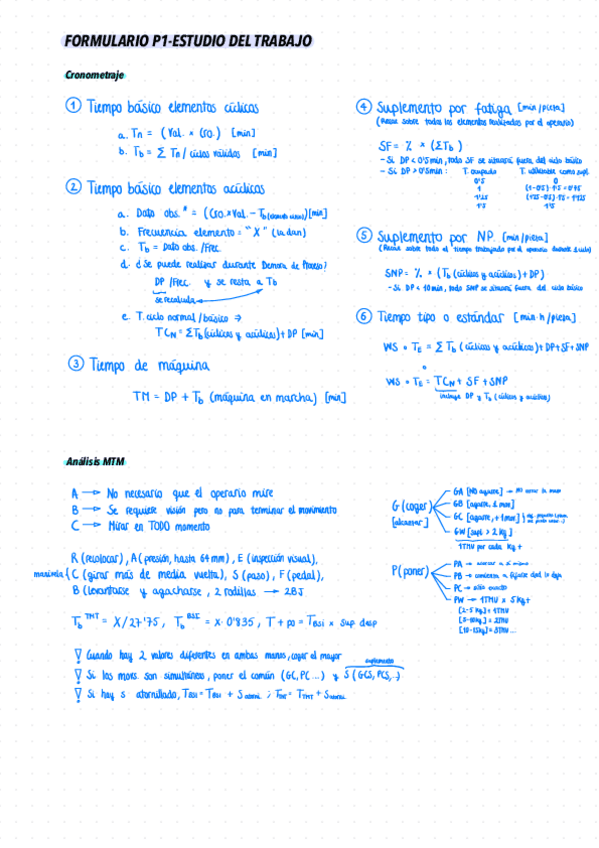 FORMULARIO P1-ESTUDIO DEL TRABAJO
Cronometraje
① Tiempo básico elementos cíclicos
a. Tn = (Val. × Cro.) [min]
b. Tb = Σ Tn / ciclos válidos [min]
② Tiempo básico elementos acíclicos
a. Dato obs.* = (Cro.×Val. - Tb ) [min]
b. Frecuencia elemento = "X" (la dan)
c. Tb = Dato obs./Frec.
d. ¿Se puede realizar durante Demora de Proceso?
DP /Frec. y se resta a Tb
se recalcula
e. T. ciclo normal / básico ⇒
TCN = ΣTb (cíclicos y acíclicos) + DP [min]
③ Tiempo de máquina
TM = DP + Tb (máquina en marcha) [min]
④ Suplemento por fatiga [min/pieza]
(Recae sobre todos los elementos realizados por el operario)
SF = % × (ΣTb)
- Si DP < 0'5 min, todo SF se situará fuera del ciclo básico
- Si DP > 0'5 min: T. ocupado T. utilizable como supl.
0'5 0
1 (1-0'5)·1'5 = 0'75
1'25 (1'25-0'5)·1'5 = 1'125
1'5 1'5
⑤ Suplemento por NP. [min/pieza]
(Recae sobre todo el tiempo trabajado por el operario durante ciclo)
SNP = % × (Tb (cíclicos y acíclicos) + DP)
- Si DP < 10 min, todo SNP se situará fuera del ciclo básico
⑥ Tiempo tipo o estándar [min·h/pieza]
WS • TE = Σ Tb (cíclicos y acíclicos) + DP + SF + SNP
o
WS • TE = TCN + SF + SNP
incluye DP y Tb (cíclicos y acíclicos)
Análisis MTM
A → No necesario que el operario mire
B → Se requiere visión pero no para terminar el movimiento
C → Mirar en TODO momento
R (recolocar), A (presión, hasta 64 mm), E (inspección visual),
manivela { C (girar más de media vuelta), S (paso), F (pedal),
B (levantarse y agacharse, 2 rodillas → 2BJ
Tb TMT = X/27'75, Tb BSI = X·0'835, T + po = TBSI × Sup desp
! Cuando hay 2 valores diferentes en ambas manos, coger el mayor
suplemento
! Si los movs. son simultáneos, poner el común (GC, PC ...) y S (GCS, PCS,..)
! Si hay s atornillado, TBSI = TBSI + Satorni. ; TTMT = TTMT + Satorni.
G (coger)
[alcanzar]
GA [NO agarre] →
GB [agarre, 1 mov]
GC [agarre, + 1 mov]
GW [supl > 2 kg]
1TMU por cada kg +
P (poner)
PA → acercar a sí mismo
PB → comienza a fijarse dnd lo deja
PC → sitio exacto
PW → 1TMU × 5kg +
[2-5 kg] = 1TMU
[5-10kg] = 2TMU
[10-15kg] = 3TMU...